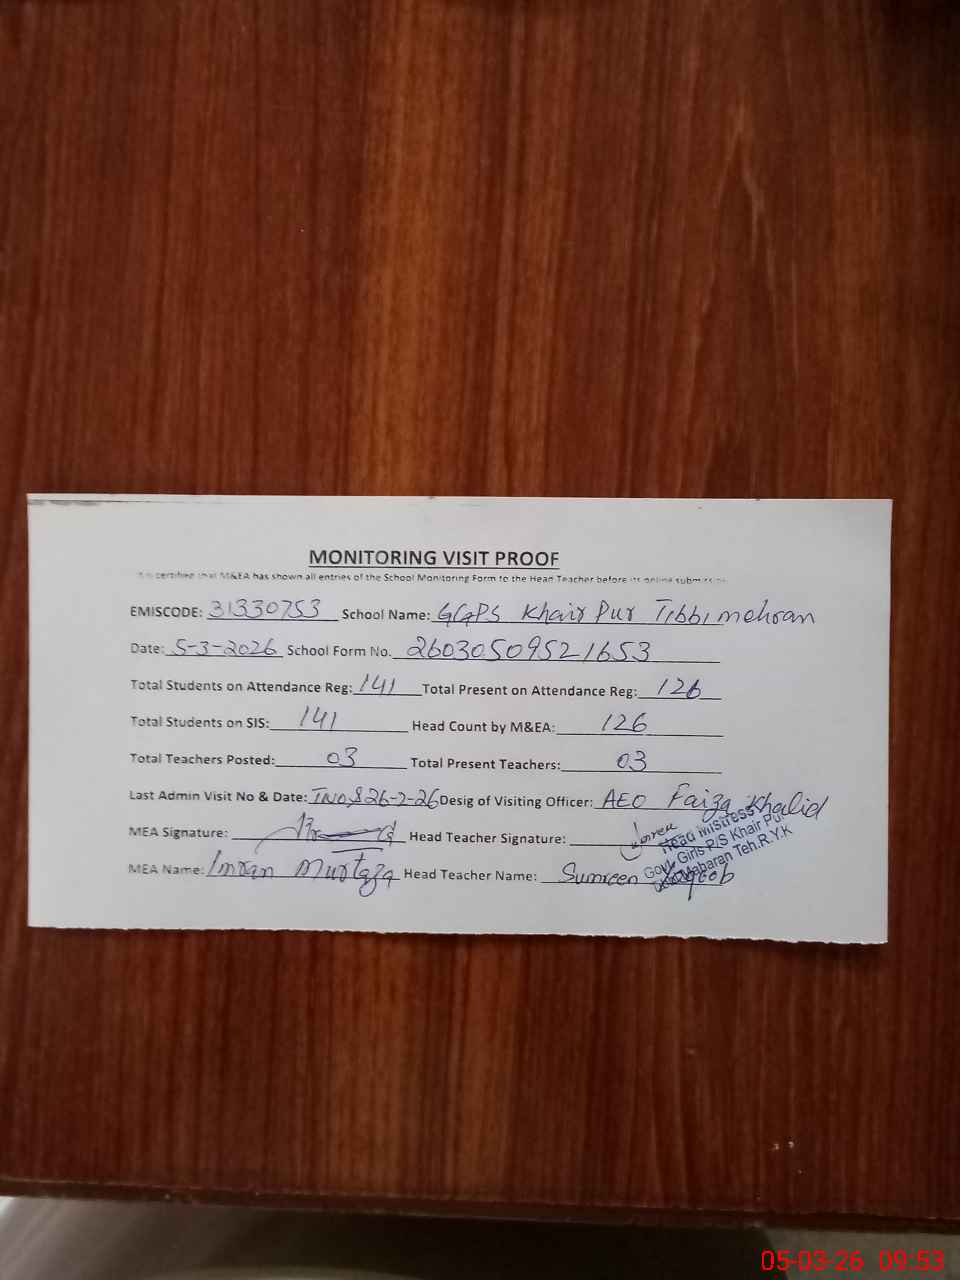 MONITORING VISIT PROOF
It is certified that M&EA has shown all entries of the School Monitoring Form to the Head Teacher before its online submission
EMISCODE: 31330753 School Name: GGPS Khair Pur Tibbi mehran
Date: 5-3-2026 School Form No. 26030509521653
Total Students on Attendance Reg: 141 Total Present on Attendance Reg: 126
Total Students on SIS: 141 Head Count by M&EA: 126
Total Teachers Posted: 03 Total Present Teachers: 03
Last Admin Visit No & Date: 26-2-26 Desig of Visiting Officer: AEO Faiza Khalid
MEA Signature: Head Teacher Signature:
Head Mistress
Govt. Girls P/S Khair Pur
Mabaran Teh.R.Y.K
MEA Name: Imran Murtaza Head Teacher Name: Sumreen
05-03-26 09:53